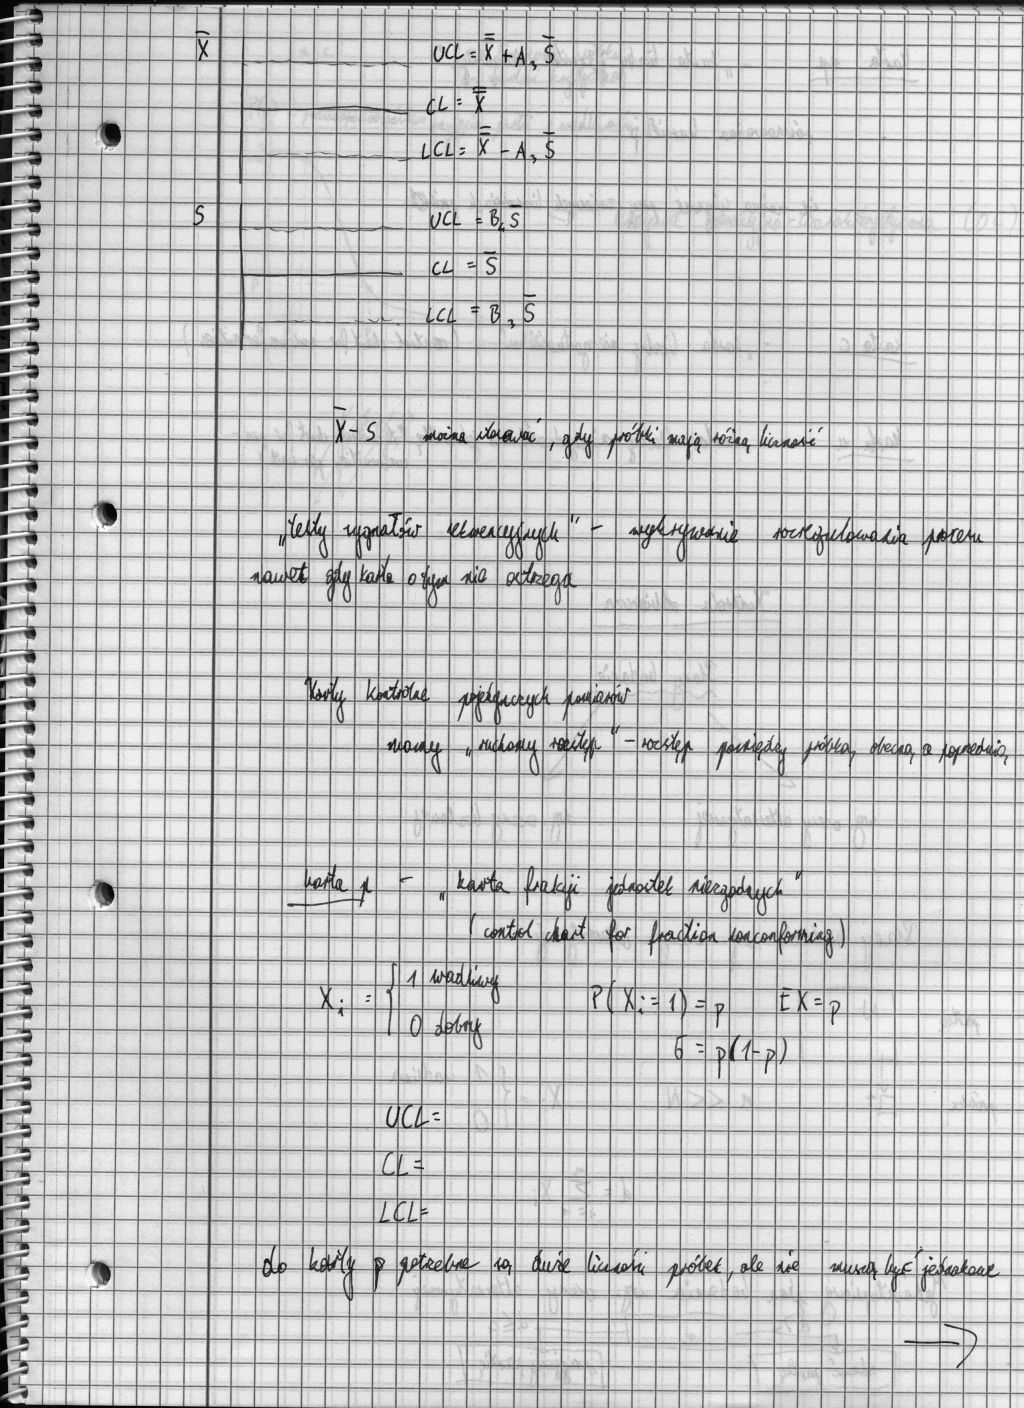 X̄
UCL = X̿ + A₃ S̄
CL = X̿
LCL = X̿ - A₃ S̄
S
UCL = B₄ S̄
CL = S̄
LCL = B₃ S̄
X̄ - S można stosować, gdy próbki mają różną liczność
„Testy sygnałów sekwencyjnych" - wykrywanie rozregulowania procesu
nawet gdy karta o tym nie ostrzega
Karty kontrolne pojedynczych pomiarów
mamy „ruchomy rozstęp" - rozstęp pomiędzy próbką obecną, a poprzednią
karta p - „karta frakcji jednostek niezgodnych"
(control chart for fraction nonconforming)
Xᵢ = { 1 wadliwy
0 dobry
P(Xᵢ = 1) = p EX = p
б = p(1-p)
UCL=
CL=
LCL=
do karty p potrzebne są duże liczności próbek, ale nie muszą być jednakowe
→